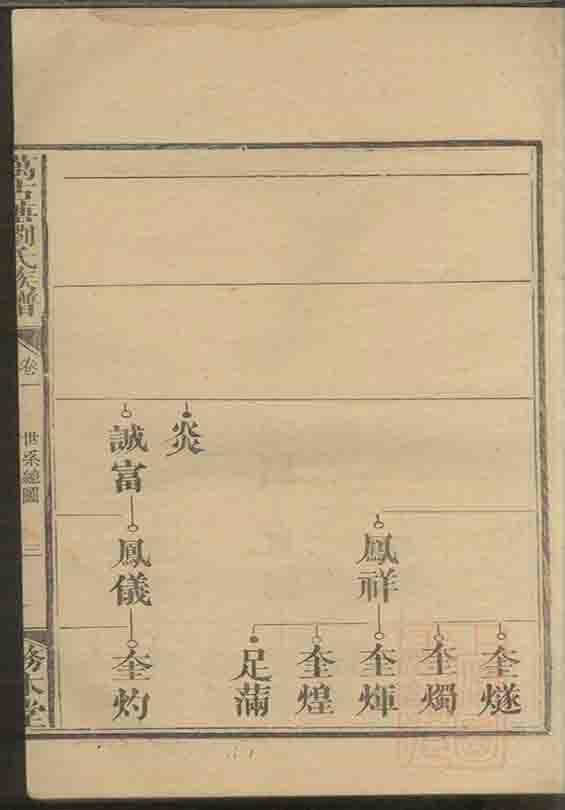 炎
誠富
鳳祥
鳳儀
奎燧
奎燭
奎煇
奎煌
足滿
奎灼
萬古塘劉氏族譜
卷一
世系總圖
三
務本堂